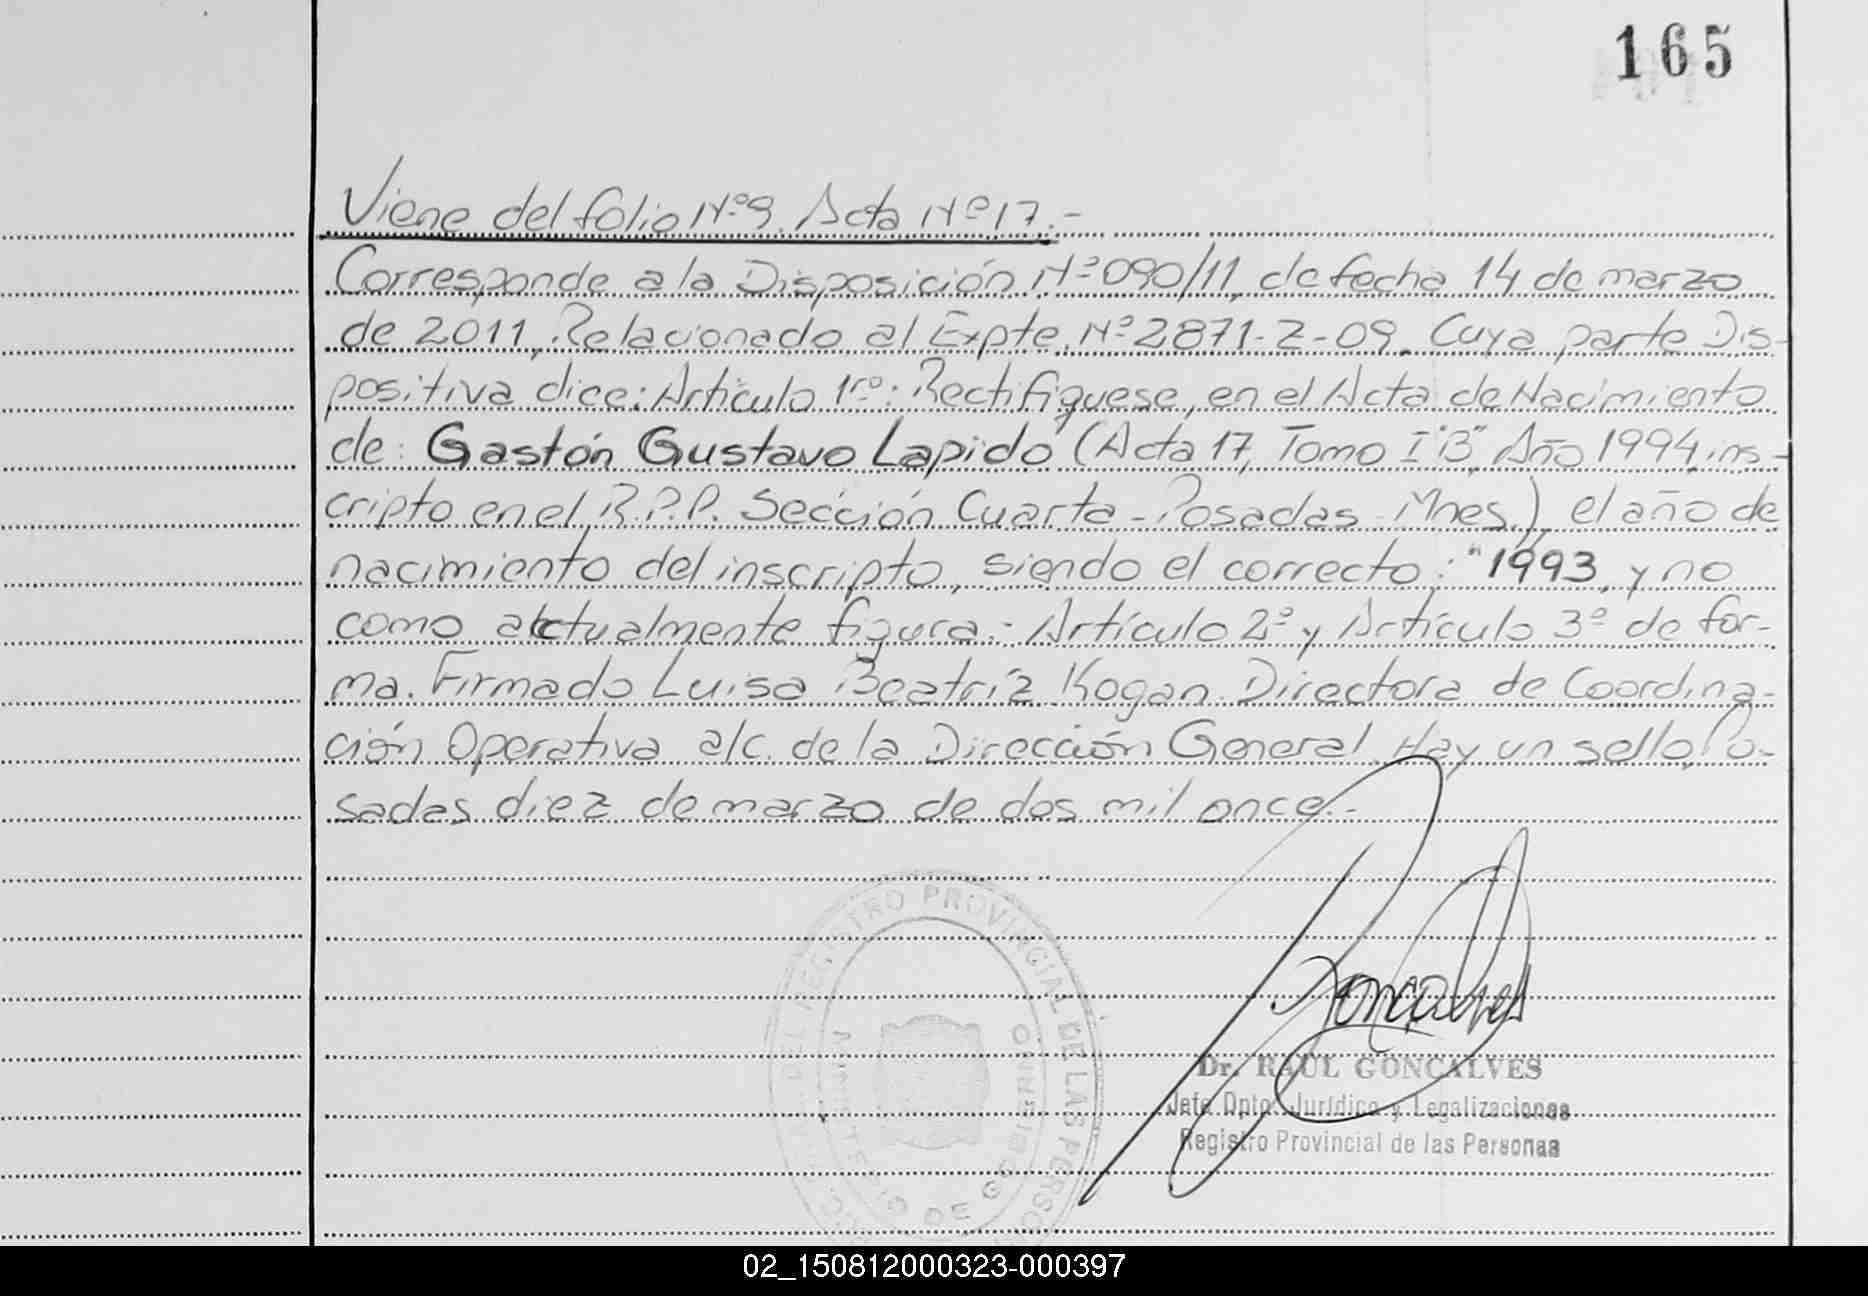 165
Viene del folio Nº 9. Acta Nº 17.-
Corresponde a la Disposición Nº 090/11, de fecha 14 de marzo
de 2011, Relacionado al Expte. Nº 2871-Z-09. Cuya parte Dis-
positiva dice: Artículo 1ro: Rectifíquese, en el Acta de Nacimiento
de: Gastón Gustavo Lapido (Acta 17, Tomo I "B", Año 1994, ins-
cripto en el R.P.P. Sección Cuarta - Posadas - Mnes.), el año de
nacimiento del inscripto, siendo el correcto: "1993, y no
como actualmente figura.- Artículo 2º y Artículo 3º de for-
ma. Firmado Luisa Beatríz Kogan. Directora de Coordina-
ción Operativa a/c. de la Dirección General. Hay un sello, Po-
sadas diez de marzo de dos mil once.-
DEL REGISTRO PROVINCIAL DE LAS PERSO
MINISTERIO DE GOBIERNO
Goncalves
Dr. RAUL GONCALVES
Jefe Dpto. Jurídico y Legalizaciones
Registro Provincial de las Personas
02_150812000323-000397